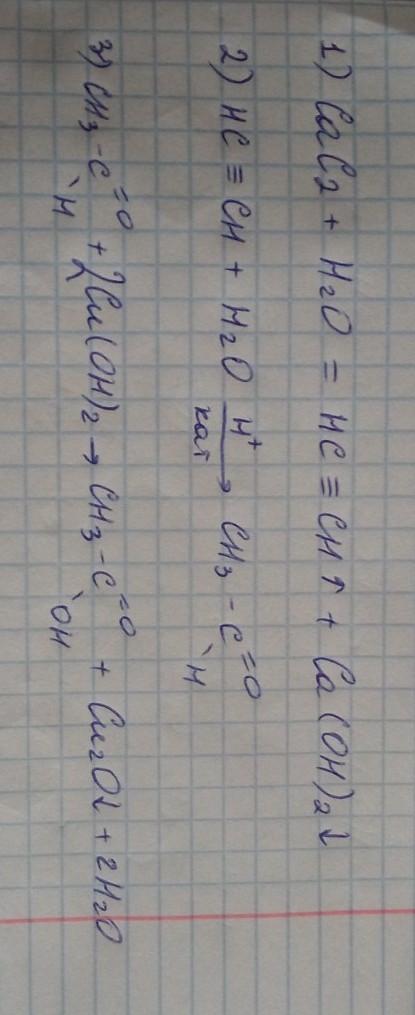 1) CaC2 + H2O = HC ≡ CH↑ + Ca(OH)2↓
2) HC ≡ CH + H2O —H⁺/кат→ CH3 - C =O \H
3) CH3 - C =O \H + 2Cu(OH)2 → CH3 - C =O \OH + Cu2O↓ + 2H2O